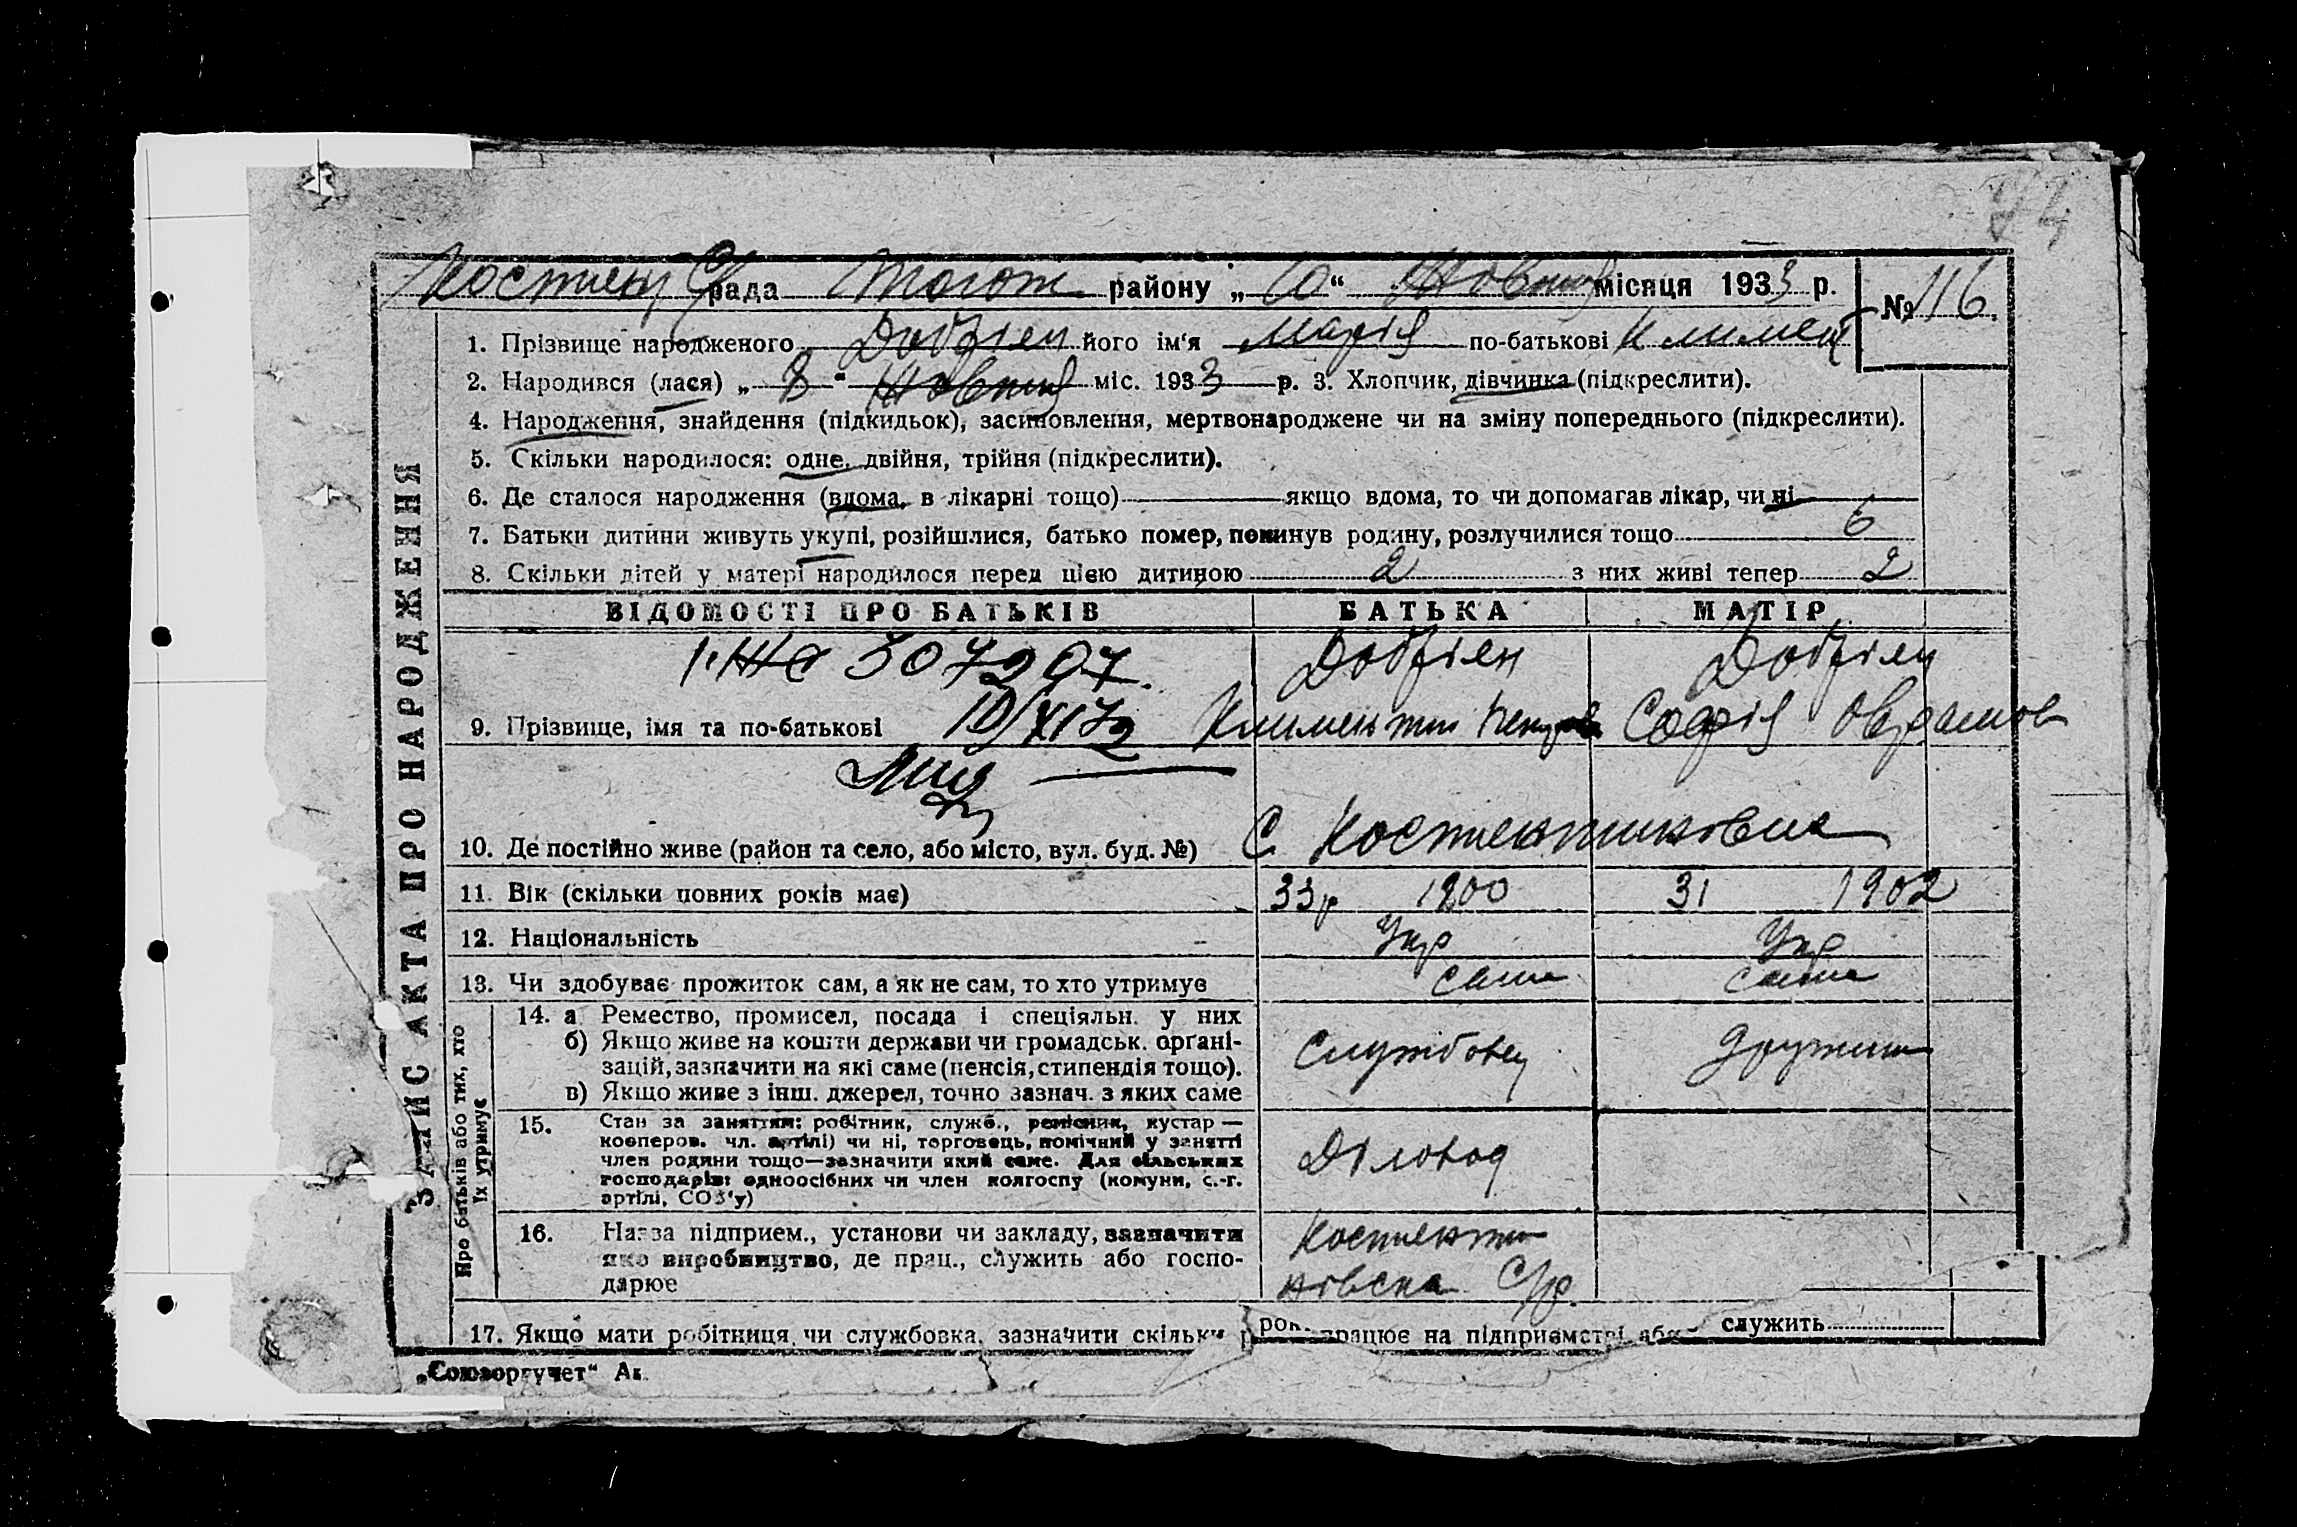 74
Костянт С/рада района „10“ Жовтня місяця 1933 р. № 116
1. Прізвище народженого Добріен його ім'я Марія по-батькові Климент
2. Народився (лася) „8“ Жовтня міс. 1933 р. 3. Хлопчик, дівчинка (підкреслити).
4. Народження, знайдення (підкидьок), засиновлення, мертвонароджене чи на зміну попереднього (підкреслити).
5. Скільки народилося: одне, двійня, трійня (підкреслити).
6. Де сталося народження (вдома, в лікарні тощо) якщо вдома, то чи допомагав лікар, чи ні
7. Батьки дитини живуть укупі, розійшлися, батько помер, покинув родину, розлучилися тощо 6
8. Скільки дітей у матері народилося перед цією дитиною 2 з них живі тепер 2
ЗАПИС АКТА ПРО НАРОДЖЕННЯ
ВІДОМОСТІ ПРО БАТЬКІВ БАТЬКА МАТІР
307297 Добріен Добріен
9. Прізвище, імя та по-батькові 10/XI 72 Климентин Софія Оврамов
10. Де постійно живе (район та село, або місто, вул. буд. №) С. Костянтиновка
11. Вік (скільки повних років має) 33р 1900 31 1902
12. Національність Укр Укр
13. Чи здобуває прожиток сам, а як не сам, то хто утримує сам сама
Про батьків або тих, хто їх утримує
14. а Ремество, промисел, посада і спеціяльн. у них
б) Якщо живе на кошти держави чи громадськ. органі-
зацій, зазначити на які саме (пенсія, стипендія тощо). Службовец дружина
в) Якщо живе з інш. джерел, точно зазнач. з яких саме
15. Стан за заняттям: робітник, служб., ремісник, кустар —
кооперов. чл. артілі) чи ні, торговець, помічний у занятті
член родини тощо—зазначити який саме. Для сільських Діловод
господарів: одноосібних чи член колгоспу (комуни, с.-г.
артілі, СОЗ'у)
16. Назва підприєм., установи чи закладу, зазначити Костянти
яке виробництво, де прац., служить або госпо- новска С/р.
дарює
17. Якщо мати робітниця чи службовка, зазначити скільки рок. працює на підприємстві або служить
„Союзоргучет“